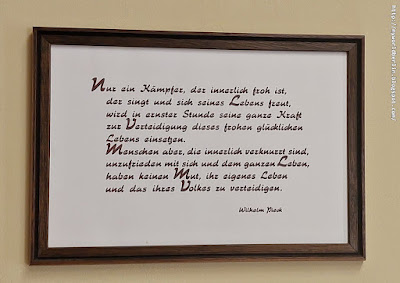 Nur ein Kämpfer, der innerlich froh ist,
der singt und sich seines Lebens freut,
wird in ernster Stunde seine ganze Kraft
zur Verteidigung dieses frohen glücklichen
Lebens einsetzen.
Menschen aber, die innerlich verknurzt sind,
unzufrieden mit sich und dem ganzen Leben,
haben keinen Mut, ihr eigenes Leben
und das ihres Volkes zu verteidigen.
Wilhelm Pieck